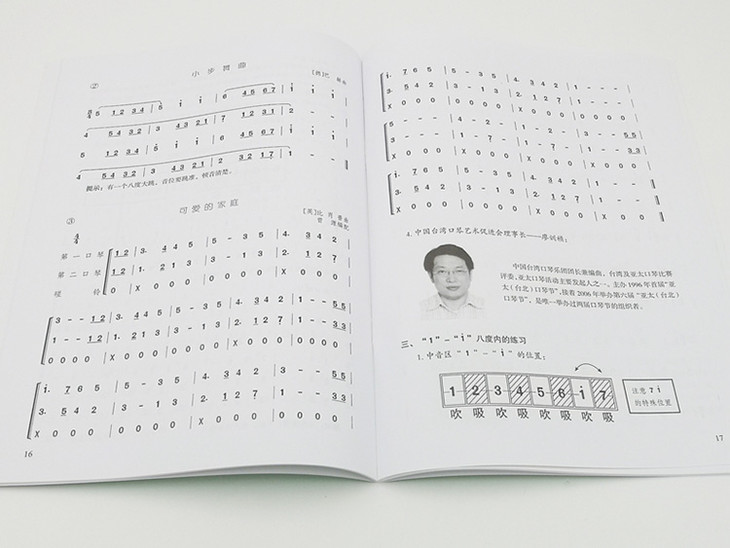 ②
小步舞曲
[德]巴 赫曲
3/4 5 1 2 3 4 | 5 i i | 6 4 5 6 7 | i i i |
4 5 4 3 2 | 3 4 3 2 1 | 7 1 2 3 1 | 2 - - |
5 1 2 3 4 | 5 i i | 6 4 5 6 7 | i i i |
4 5 4 3 2 | 3 4 3 2 1 | 2 3 2 1 7 | 1 - - ‖
提示：有一个八度大跳，音位要跳准、倾音清楚。
③
可爱的家庭
[英]比 肖 普曲
4/4
第一口琴 1 2 | 3. 4 4 5 | 5 - 3 5 | 4. 3 4 2 |
第二口琴 1 2 | 1. 2 2 3 | 3 - 1 3 | 2. 1 2 7 |
哑 铃 0 0 | X 0 0 0 | 0 0 0 0 | X 0 0 0 |
3 - - 1 2 | 3. 4 4 5 | 5 - 3 5 | 4. 3 4 2 |
1 - - 1 2 | 1. 2 2 3 | 3 - 1 3 | 2. 1 2 7 |
0 0 0 0 | X 0 0 0 | 0 0 0 0 | X 0 0 0 |
i. 7 6 5 | 5 - 3 5 | 4. 3 4 2 | 3 - - 5 5 |
3. 5 4 3 | 3 - 1 3 | 2. 1 2 7 | 1 - - 3 3 |
X 0 0 0 | 0 0 0 0 | X 0 0 0 | 0 0 0 0 |
16
i. 7 6 5 | 5 - 3 5 | 4. 3 4 2 | 1 - - - |
3. 5 4 3 | 3 - 1 3 | 2. 1 2 7 | 1 - - - |
X 0 0 0 | 0 0 0 0 | X 0 0 0 | 0 0 0 0 |
5 - - - | 4 - 2 - | 1 - - - | 3 - - 5 5 |
3 - - - | 1 - 7 - | 1 - - - | 1 - - 3 3 |
X 0 0 0 | 0 0 0 0 | X 0 0 0 | 0 0 0 0 |
i. 7 6 5 | 5 - 3 5 | 4. 3 4 2 | 1 - - ‖
3. 5 4 3 | 3 - 1 3 | 2. 1 2 7 | 1 - - ‖
X 0 0 0 | 0 0 0 0 | X 0 0 0 | 0 0 0 ‖
4. 中国台湾口琴艺术促进会理事长——廖训祯：
中国台湾口琴乐团团长兼编曲，台湾及亚太口琴比赛
评委，亚太口琴活动主要发起人之一。主办1996年首届“亚
太（台北）口琴节”，接着2006年举办第六届“亚太（台北）
口琴节”，是唯一举办过两届口琴节的组织者。
三、“1”－“i”八度内的练习
1. 中音区“1”－“i”的位置：
1 2 3 4 5 6 i 7
吹 吸 吹 吸 吹 吸 吹 吸
注意 7 i
的特殊位置
17